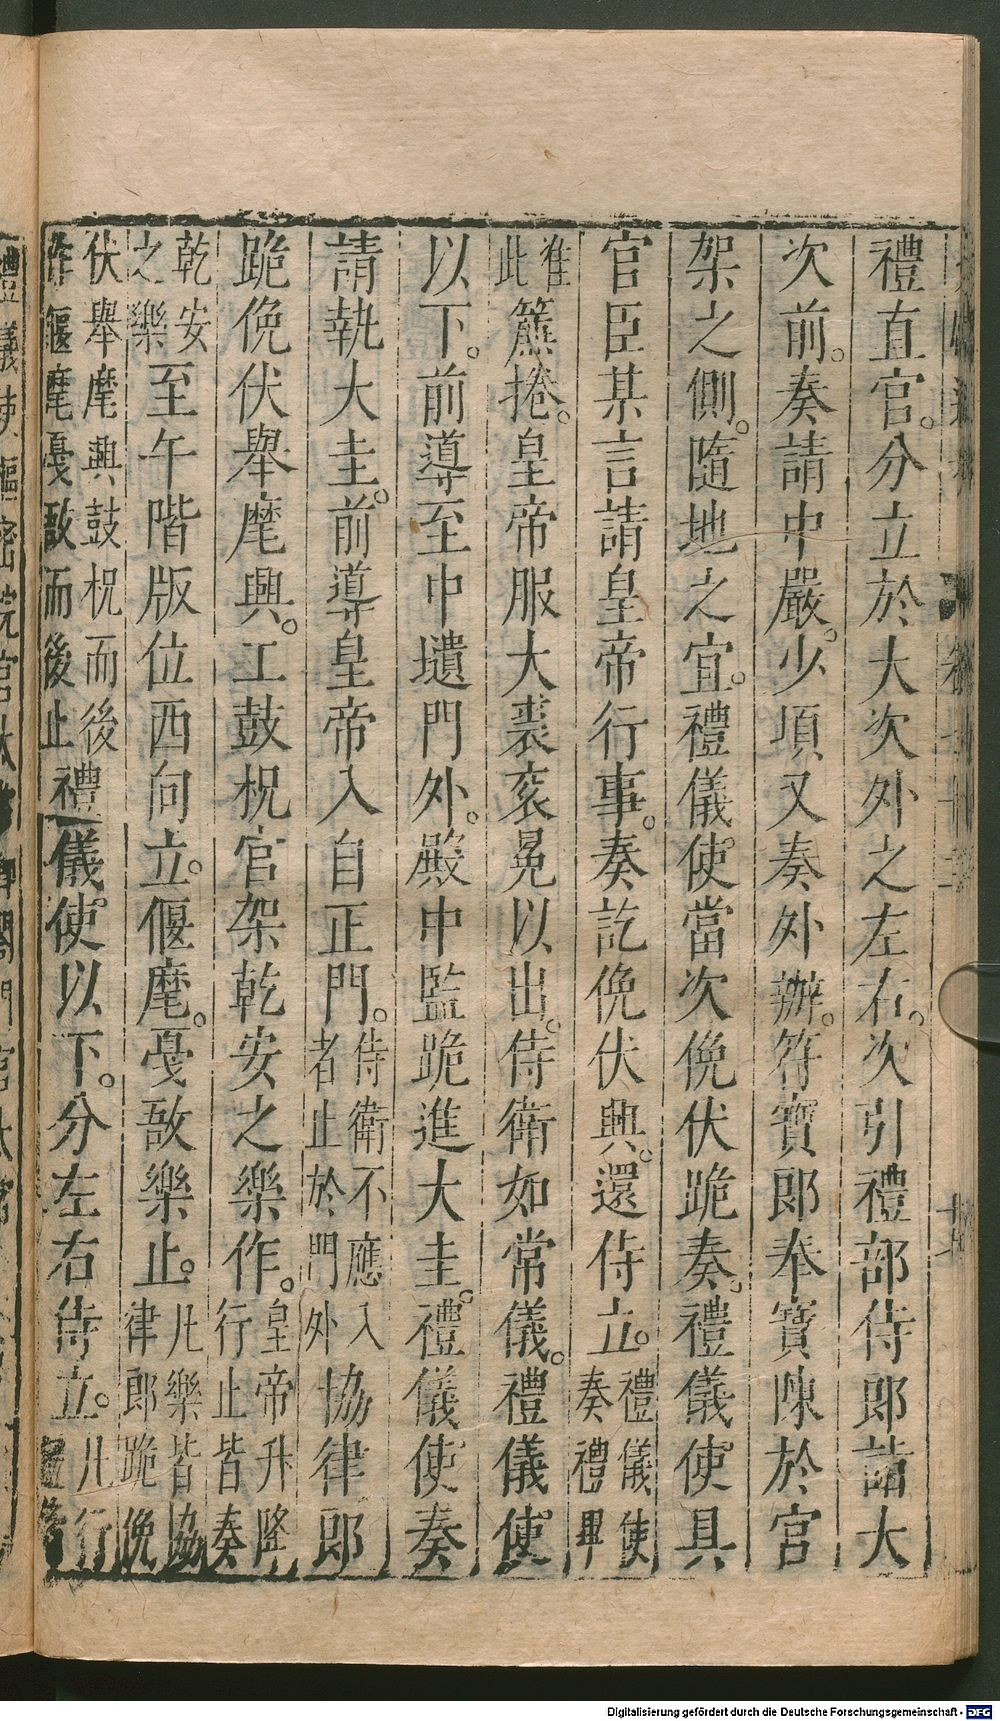 禮直官。分立於大次外之左右。次引禮部侍郎詣大
次前。奏請中嚴。少頃又奏外辦。符寶郎奉寶陳於宮
架之側。隨地之宜。禮儀使當次俛伏跪奏。禮儀使具
官臣某言請皇帝行事。奏訖俛伏興。還侍立。禮儀使奏禮畢
准此簾捲。皇帝服大裘袞冕以出。侍衛如常儀。禮儀使
以下。前導至中壝門外。殿中監跪進大圭。禮儀使奏
請執大圭。前導皇帝入自正門。侍衛不應入者止於門外協律郎
跪俛伏舉麾興。工鼓柷宮架乾安之樂作。皇帝升降行止皆奏
乾安之樂至午階版位西向立。偃麾。戞敔樂止。凡樂皆協律郎跪俛
伏舉麾興鼓柷而後作偃麾戞敔而後止禮儀使以下。分左右侍立。凡行
Digitalisierung gefördert durch die Deutsche Forschungsgemeinschaft - DFG